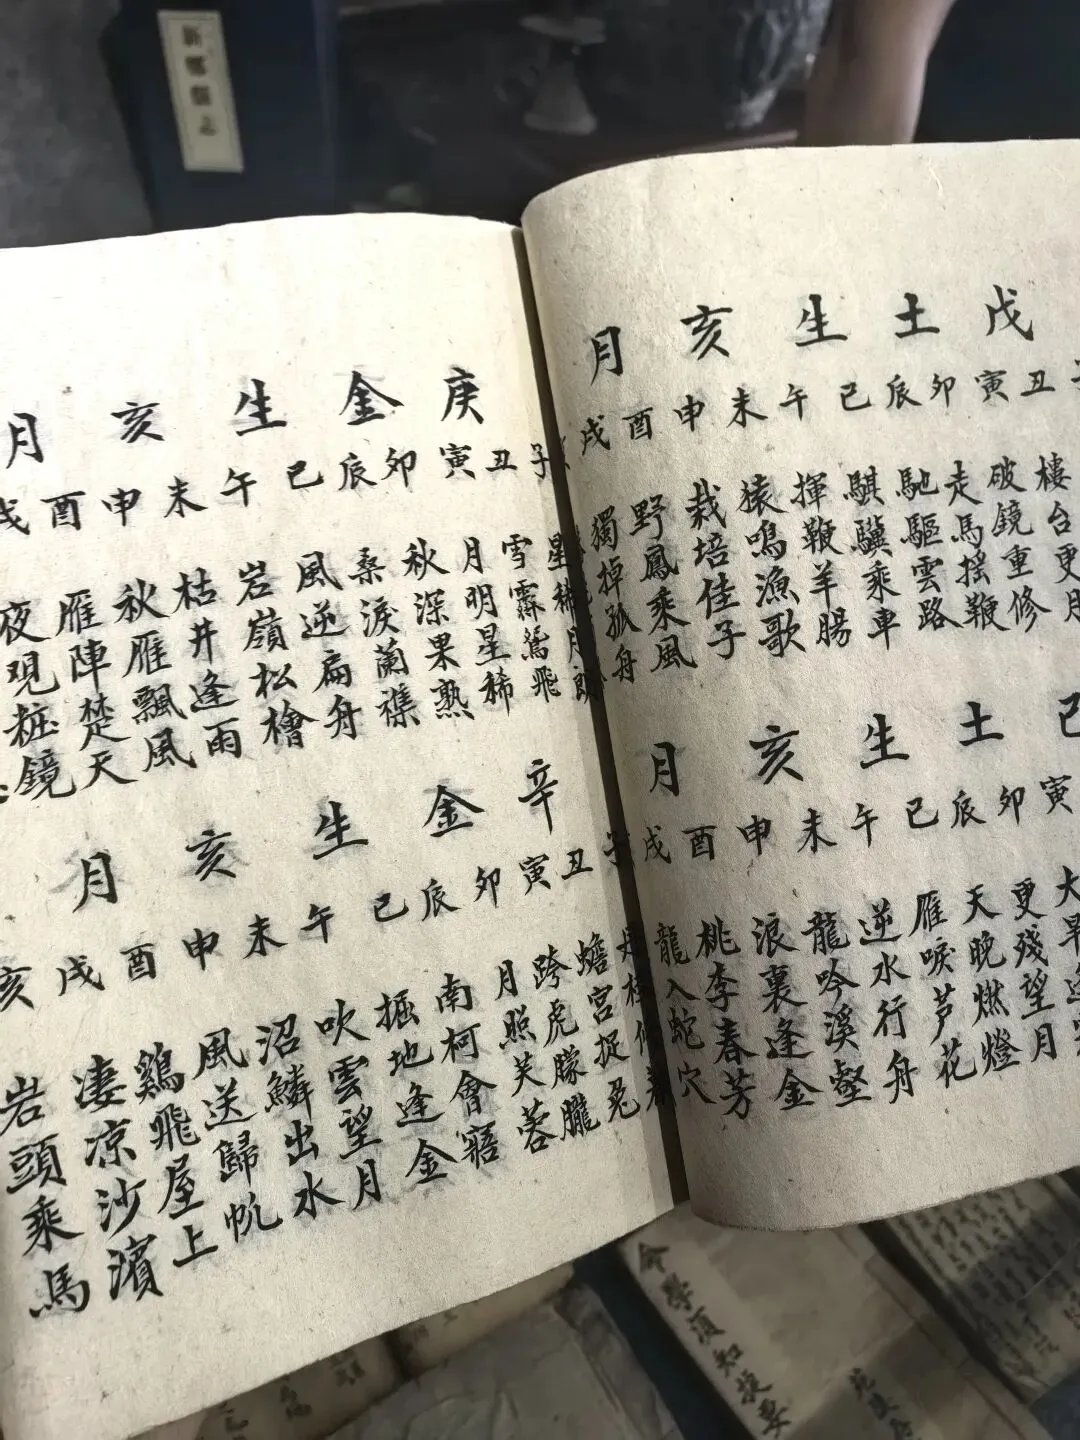 戊土生亥月
丑寅卯辰巳午未申酉戌
樓台更月
破鏡重修
走馬搖鞭
馳驅雲路
騏驥乘車
揮鞭羊腸
猿鳴漁歌
栽培佳子
野鳳乘風
獨掉孤舟
己土生亥月
寅卯辰巳午未申酉戌
大旱
更残望月
天晚燃燈
雁唳芦花
逆水行舟
龍吟溪壑
浪裏逢金
桃李春芳
龍入蛇穴
庚金生亥月
子丑寅卯辰巳午未申酉戌
星稀月朗
雪霽鴛飛
月明星稀
秋深果熟
桑淚蘭襟
風逆扁舟
岩嶺松檜
枯井逢雨
秋雁飄風
雁陣楚天
夜观粧鏡
辛金生亥月
子丑寅卯辰巳午未申酉戌亥
蟾宮捉兔
跨虎朦朧
月照芙蓉
南柯會寤
掘地逢金
吹雲望月
沼鱗出水
風送歸帆
鷄飛屋上
凄凉沙濱
岩頭乘馬
命學須知捷要